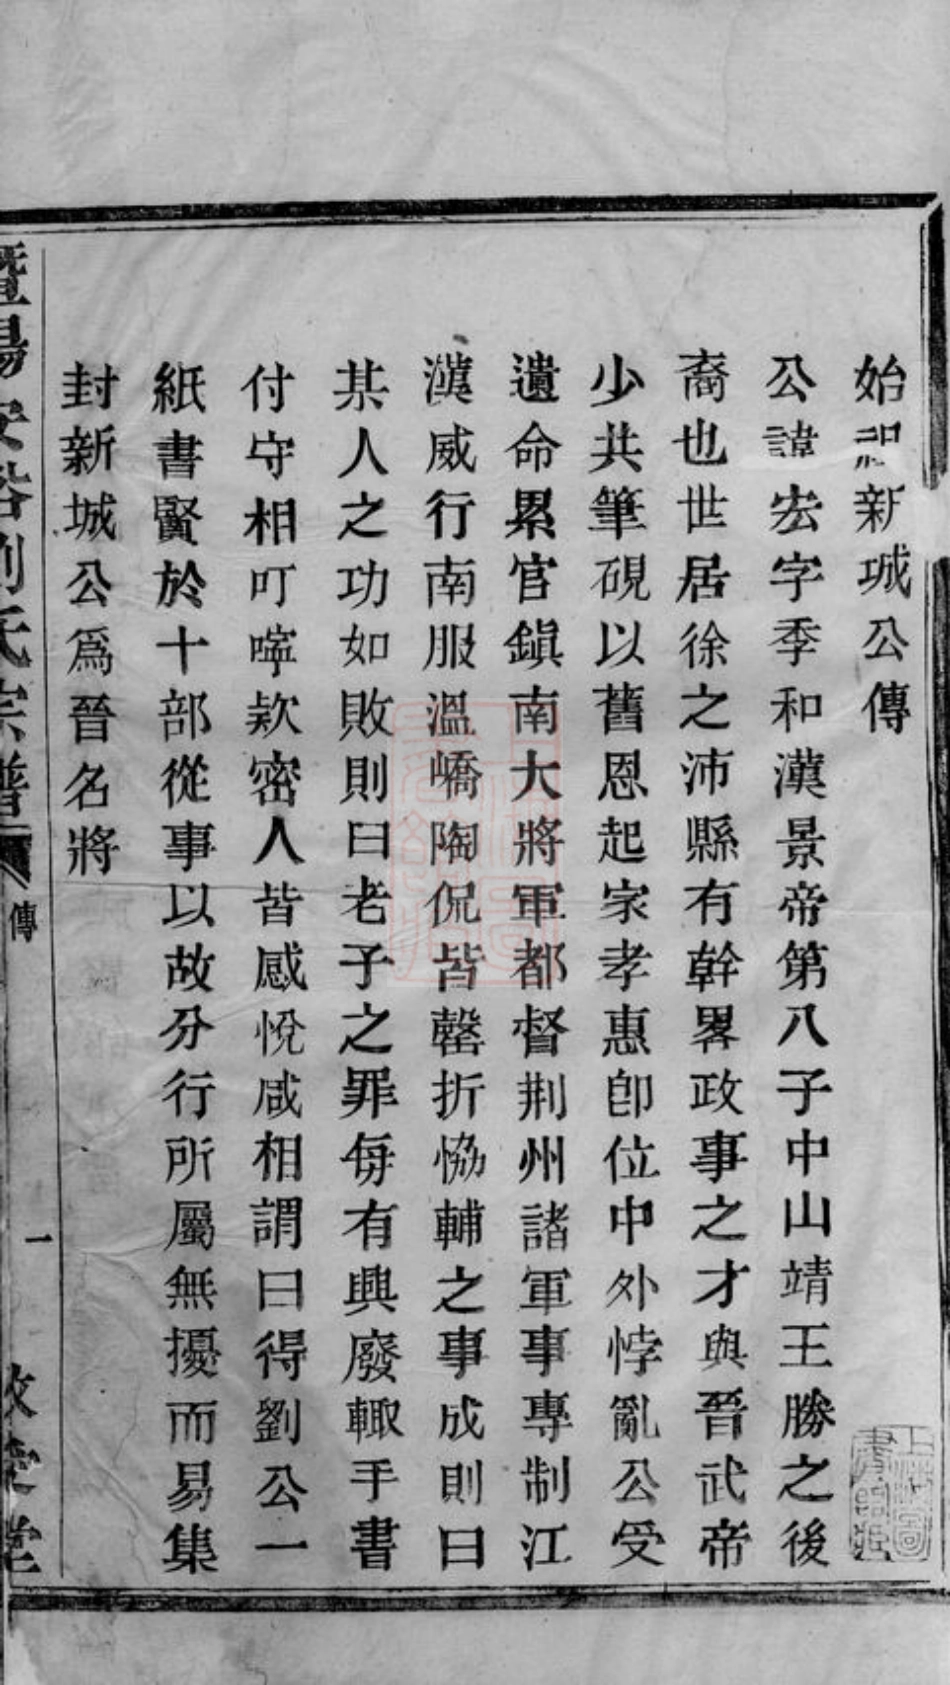 始祖新城公傳
公諱宏字季和漢景帝第八子中山靖王勝之後
裔也世居徐之沛縣有幹畧政事之才與晉武帝
少共筆硯以舊恩起家孝惠卽位中外悖亂公受
遺命累官鎮南大將軍都督荆州諸軍事專制江
漢威行南服溫嶠陶侃皆罄折恊輔之事成則曰
某人之功如敗則曰老子之罪每有興廢輙手書
付守相叮嚀欵密人皆感悅咸相謂曰得劉公一
紙書賢於十部從事以故分行所屬無擾而易集
封新城公爲晉名將
暨陽安劉氏宗譜
傳
一
堂
上海圖書館藏